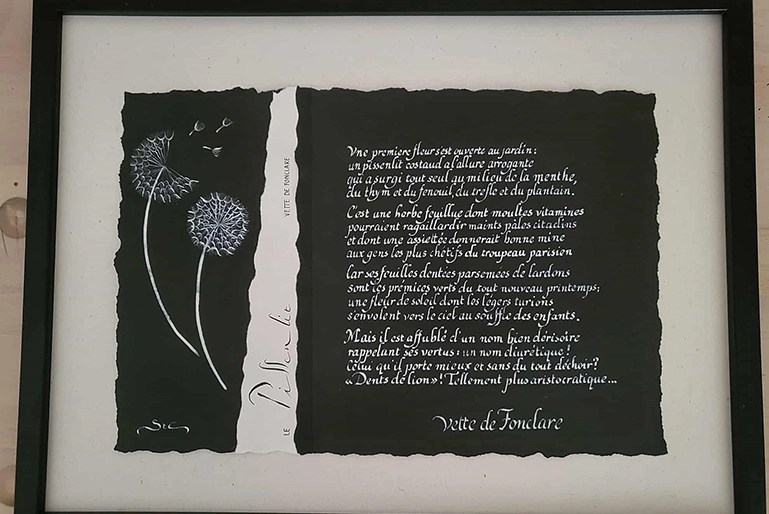 Une premiere fleur s'est ouverte au jardin:
un pissenlit costaud a l'allure arrogante
qui a surgi tout seul au milieu de la menthe,
du thym et du fenouil, du trefle et du plantain.
C'est une herbe feuillue dont moultes vitamines
pourraient ragaillardir maints pâles citadins
et dont une assiettée donnerait bonne mine
aux gens les plus chétifs du troupeau parisien
Car ses feuilles dentées parsemées de lardons
sont les prémices verts du tout nouveau printemps;
une fleur de soleil dont les légers turions
s'envolent vers le ciel au souffle des enfants.
Mais il est affublé d'un nom bien dérisoire
rappelant ses vertus: un nom diurétique!
Celui qu'il porte mieux et sans du tout déchoir?
«Dents de lion»! Tellement plus aristocratique...
Vette de Fonclare
LE Pissenlit
VETTE DE FONCLARE
StC